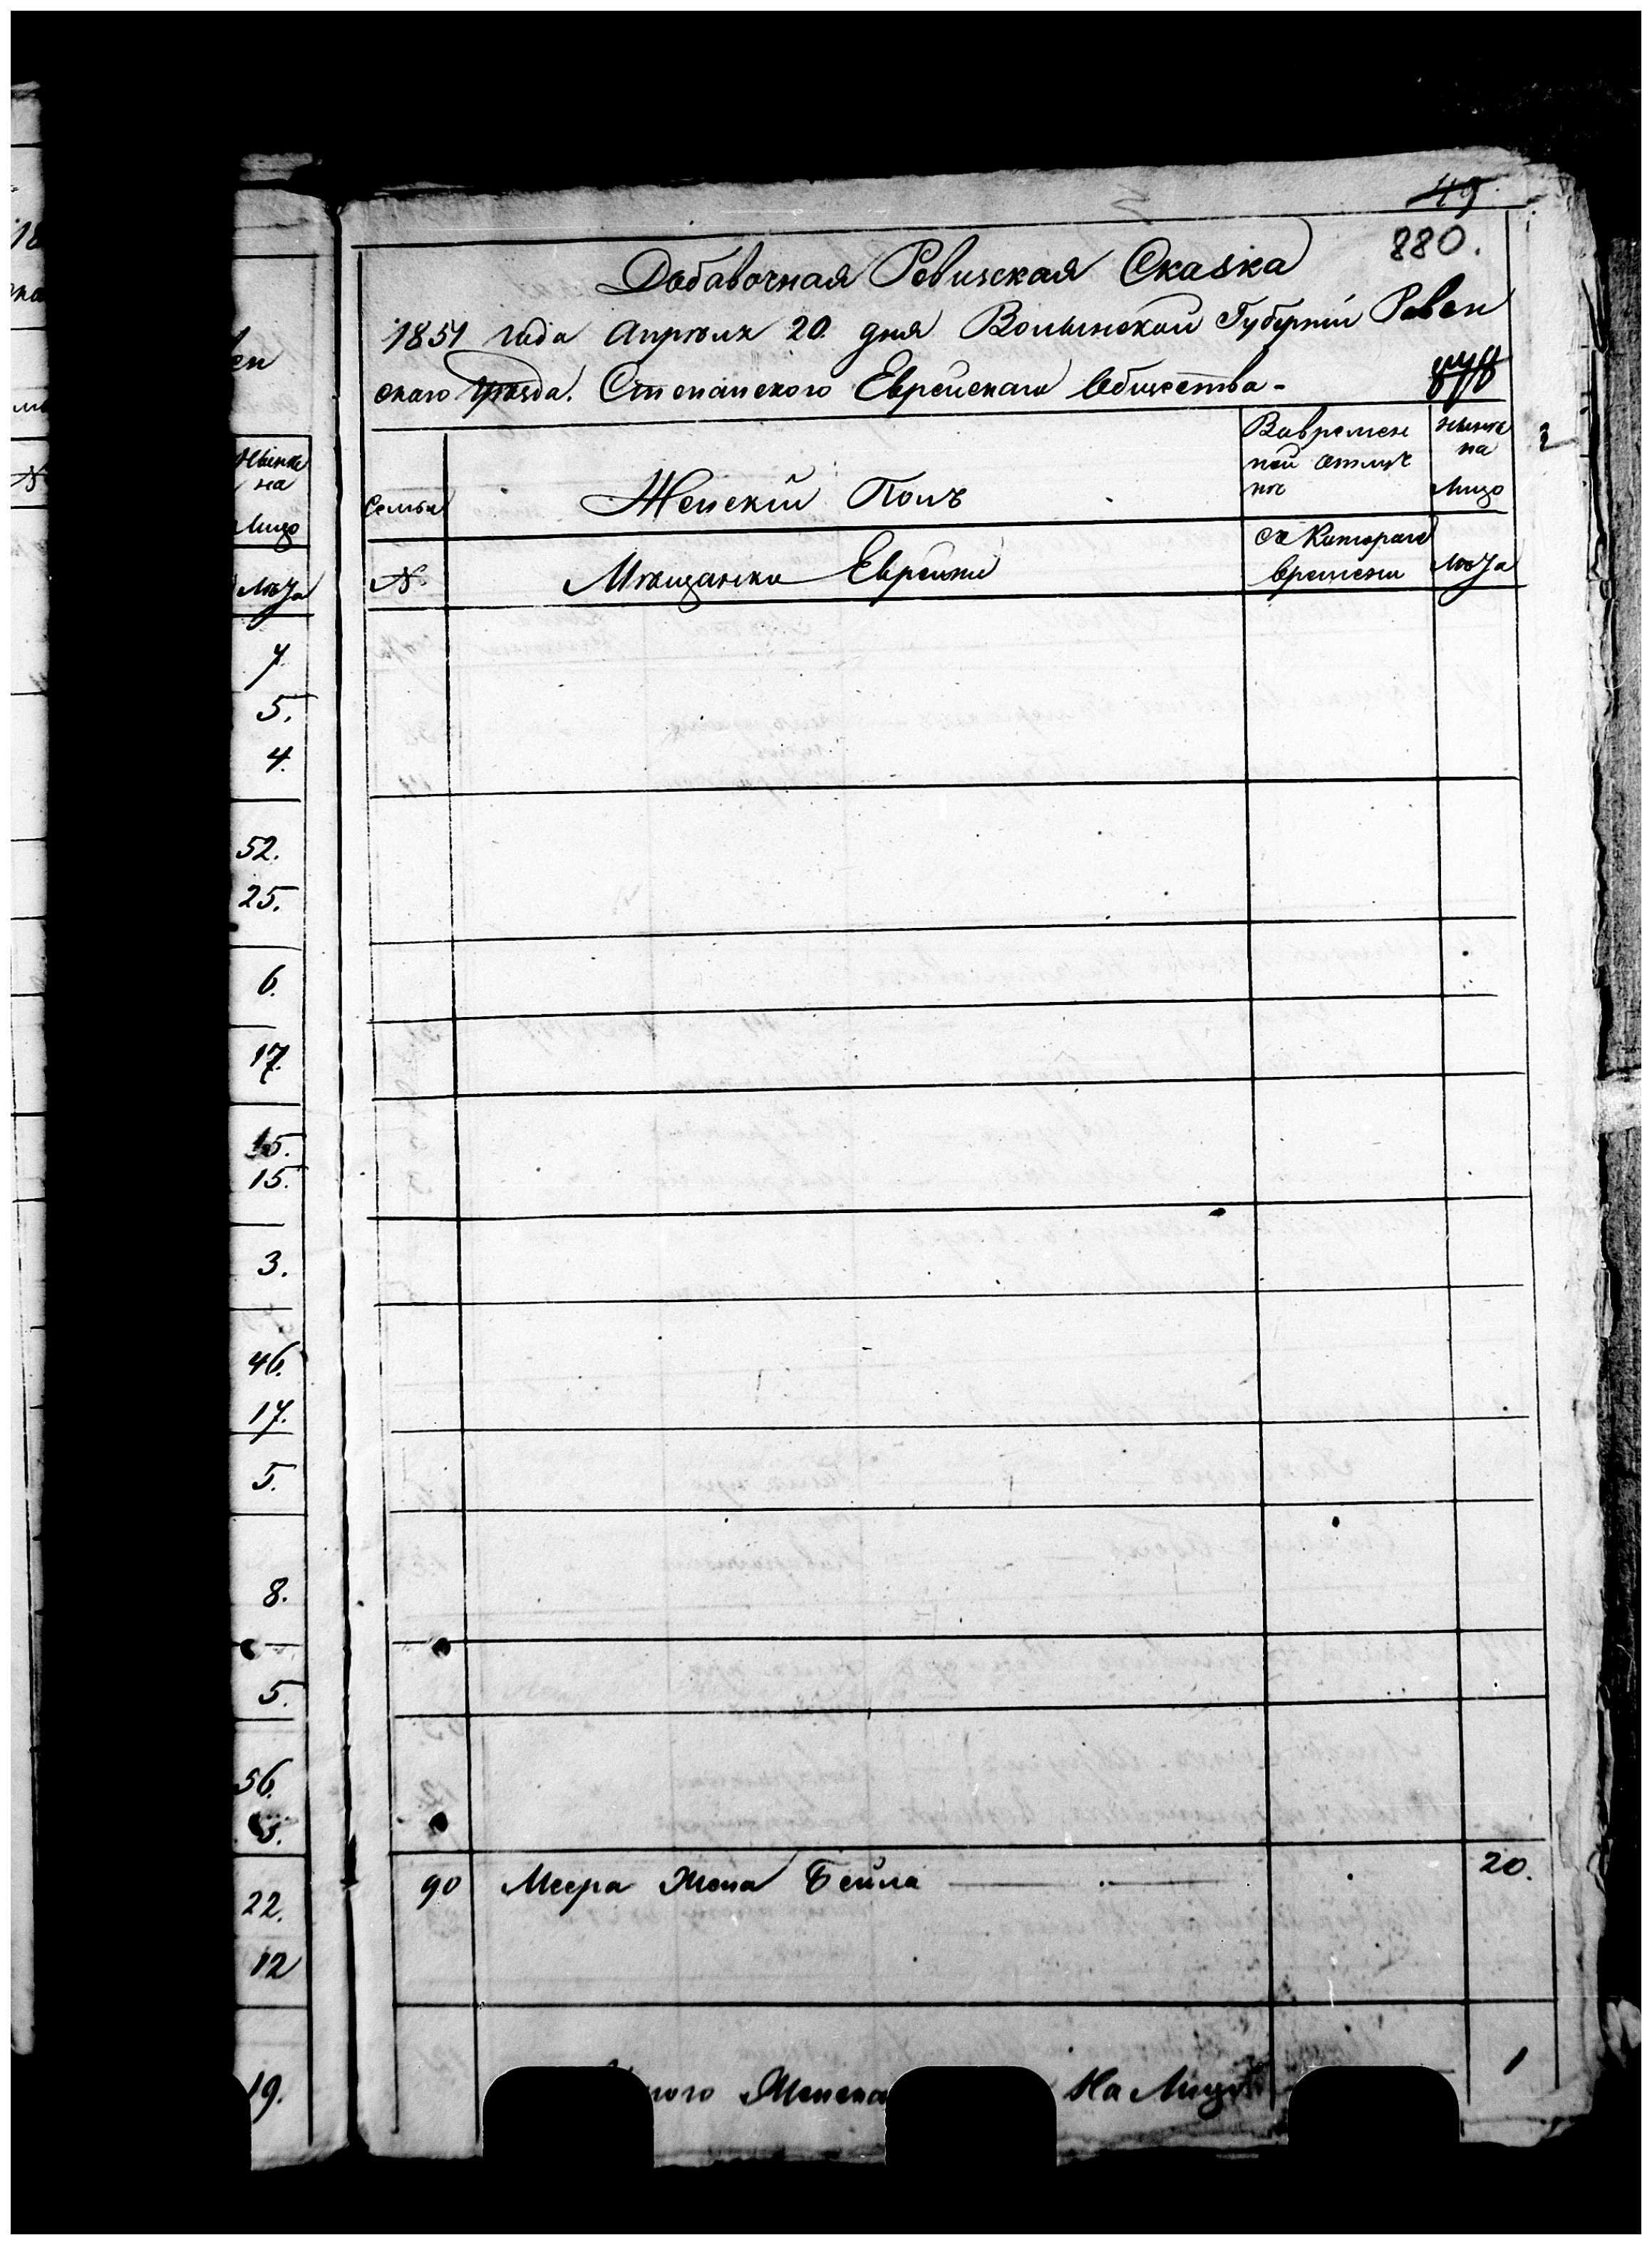 49
880.
Добавочная Ревижская Сказка
1851 года Апреля 20 дня Волынской Губерніи Ровен
скаго Уезда. Степанского Еврейскаго Общества -
Семьи
Женскій Полъ
Вовремен
ной отлуч
ке
Ныне
на
Лицо
№
Мещанки Еврейки
съ Котораго
времени
Лета
90 Меера Жена Бейла 20.
ного Женска На Лицо 1
ен
Ныне
на
Лицо
Лета
7.
5.
4.
52.
25.
6.
17.
15.
15.
3.
46.
17.
5.
8.
5.
56.
22.
12
19.